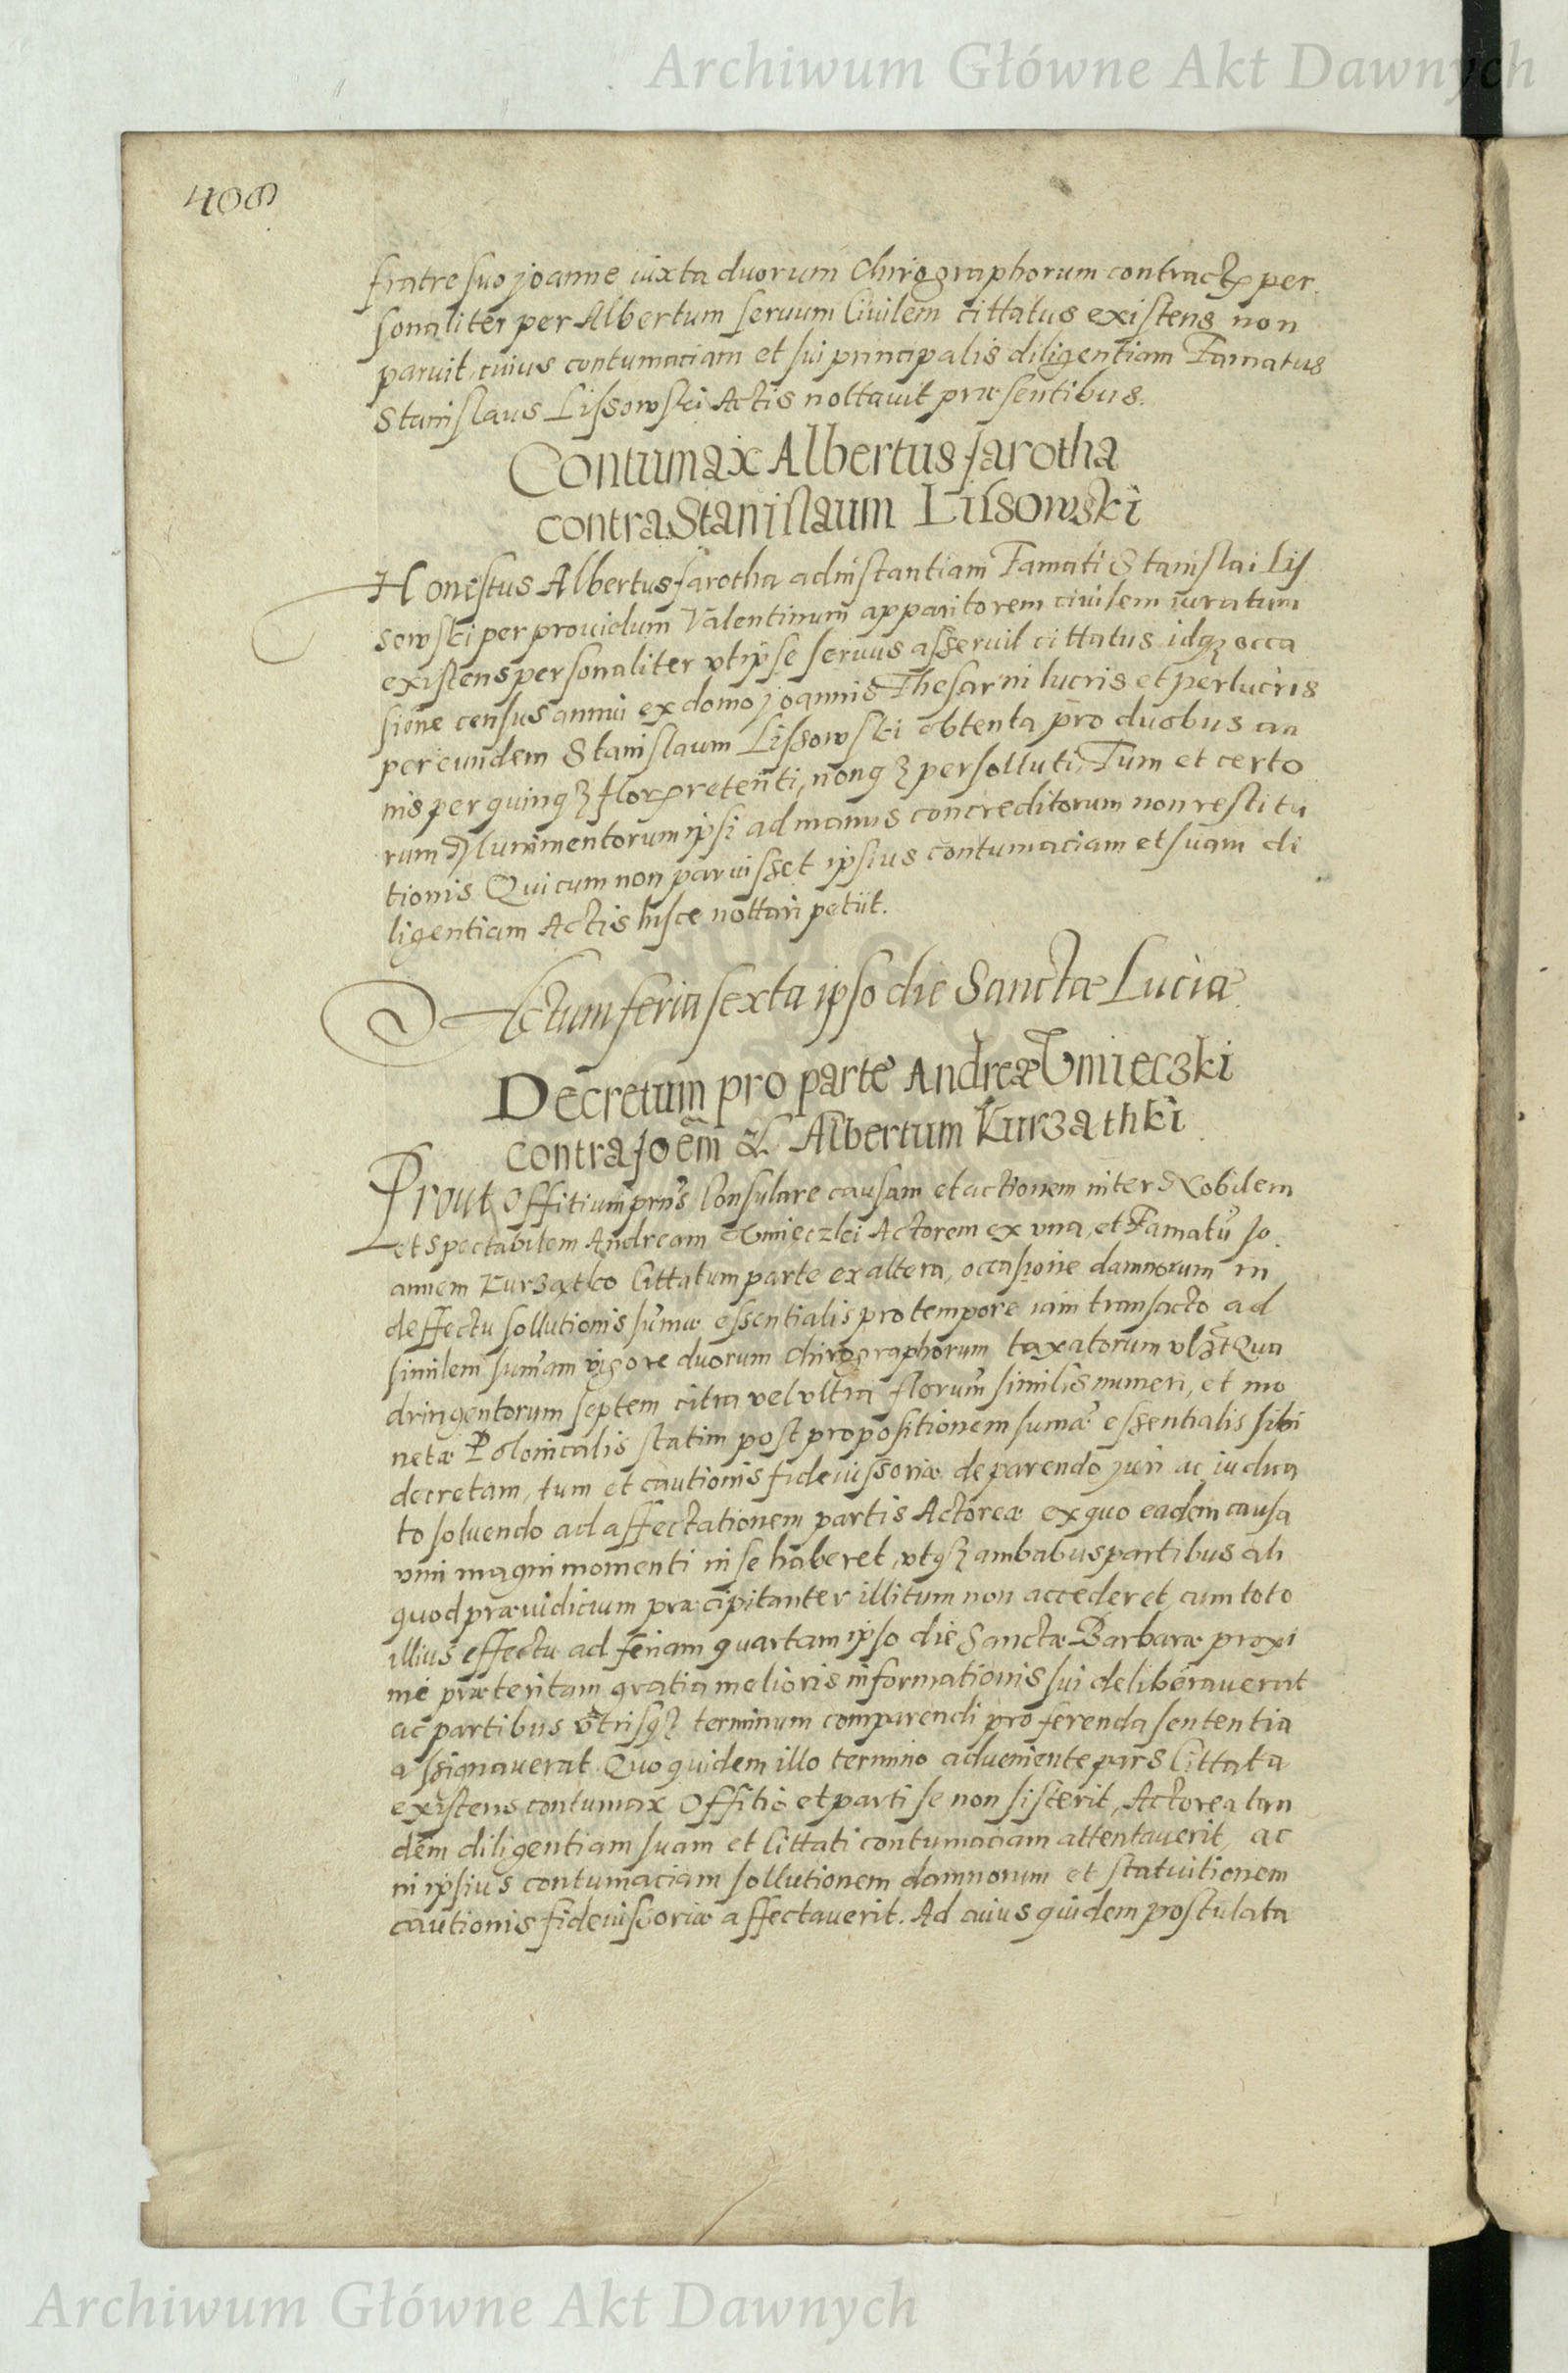 Archiwum Główne Akt Dawnych
408
fratre suo joanne iuxta duorum Chirographorum contractꝝ per
sonaliter per Albertum seruum Ciuilem cittatus existens non
paruit, cuius contumaciam et sui principalis diligentiam Famatus
Stanislaus Lissowski Actis nottauit præsentibus.
Contumax Albertus Jarotha
contra Stanislaum Lissowski
Honestus Albertus Jarotha ad instantiam Famati Stanislai Lis
sowski per prouidum Valentinum apparitorem ciuilem iuratum
existens personaliter vt ipse seruus asseruit cittatus idqꝫ occa
sione census annui ex domo joannis Thesarni lucris et perlucris
per eundem Stanislaum Lissowski obtenta pro duobus an
nis per quinqꝫ florꝝ retenti, nonqꝫ persolluti, Tum et certo
rum Munimentorum ipsi ad manus concreditorum non restitu
tionis Qui cum non paruisset ipsius contumaciam et suam di
ligentiam Actis hisce nottari petiit.
Actum feria sexta ipso die Sanctæ Luciæ
Decretum pro parte Andreæ Gnieczki
contra Joem̃ & Albertum Kurzathki
Prout Offitium prns̃ Consulare causam et actionem inter Nobilem
et Spectabilem Andream Gnieczki Actorem ex vna, et Famatũ Jo
annem Kurzatko Cittatum parte ex altera, occasione damnorum in
deffectu sollutionis sum̃æ essentialis pro tempore iam transacto ad
similem sum̃am vigore duorum Chirographorum taxatorum vlꝫt Qua
dringentorum septem citra vel vltra florum̃ similis numeri, et mo
netæ Polonicalis statim post propositionem sum̃æ essentialis sibi
decretam, tum et cautionis fideiussoriæ de parendo juri ac iudica
to soluendo ad affectationem partis Actoreæ ex quo eadem causa
vim magni momenti in se haberet, vtqꝫ ambabus partibus ali
quod præiudicium præcipitanter illitum non accederet, cum toto
illius effectu ad feriam quartam ipso die Sanctæ Barbaræ proxi
me præteritam gratia melioris informationis sui deliberauerat
ac partibus vtrisqꝫ terminum comparendi pro ferenda sententia
assignauerat. Quo quidem illo termino adueniente pars Cittata
existens contumax Offitio et parti se non sisterit, Actorea tan
dem diligentiam suam et Cittati contumaciam attentauerit, ac
in ipsius contumaciam sollutionem damnorum et statuitionem
cautionis fideiussoriæ affectauerit. Ad cuius quidem postulata
Archiwum Główne Akt Dawnych